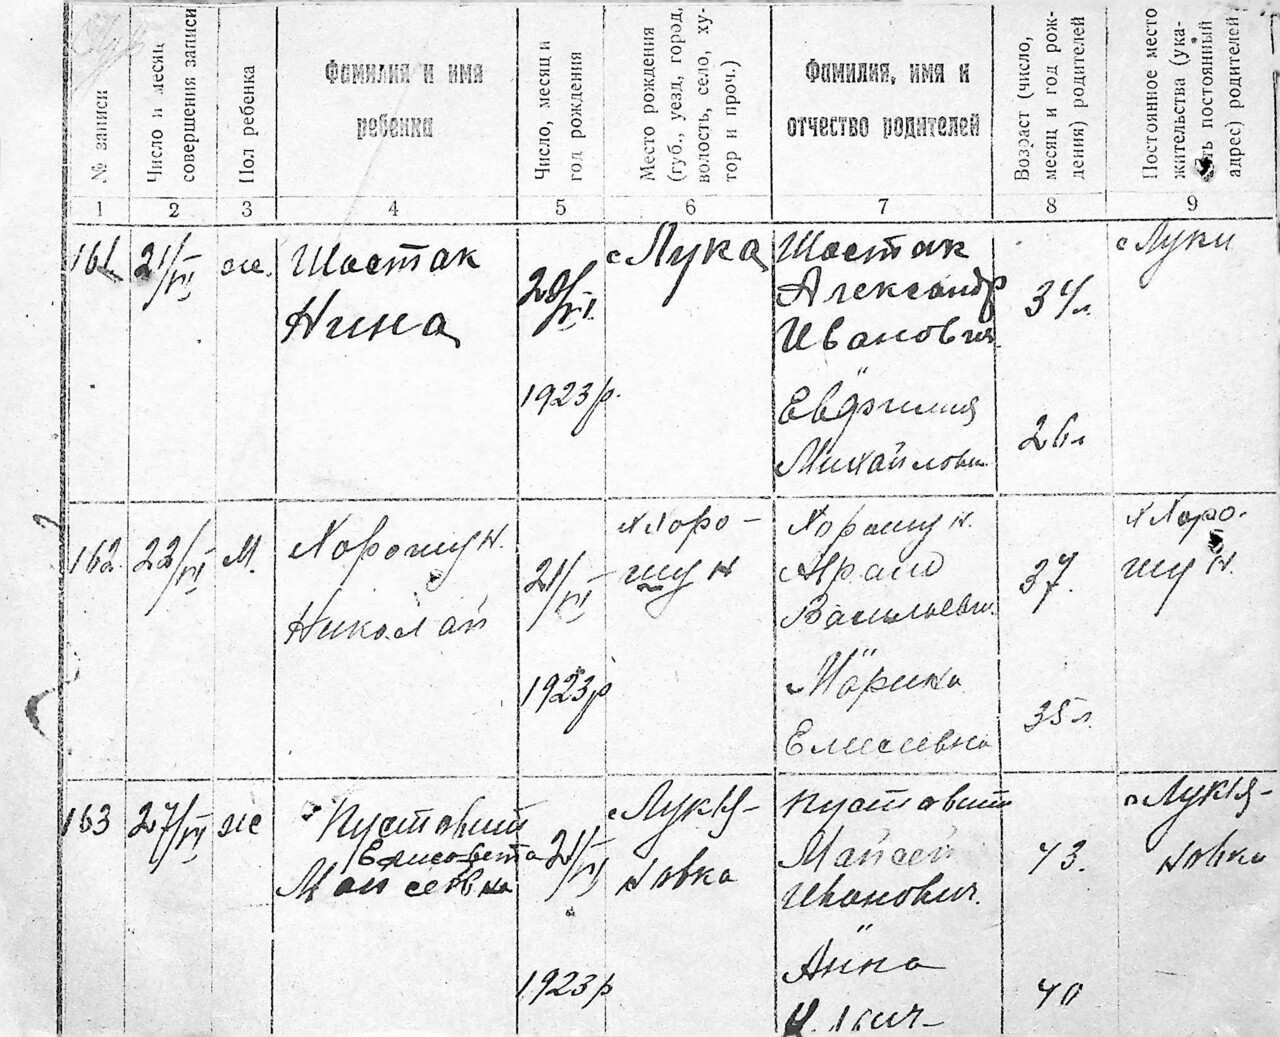 № записи
Число и месяц
совершения записи
Пол ребенка
Фамилия и имя
ребенка
Число, месяц и
год рождения
Место рождения
(губ., уезд, город,
волость, село, ху-
тор и проч.)
Фамилия, имя и
отчество родителей
Возраст (число,
месяц и год рож-
дения) родителей
Постоянное место
жительства (ука-
ать постоянный
адрес) родителей
1 2 3 4 5 6 7 8 9
161
21/VI
же.
Шостак
Нина
20/VI.
1923 р.
с Лука
Шостак
Александр
Иванович
Михайловн
34 л.
26 л
с Луки
162.
22/VI
м.
Хорошун.
Николай
21/VI
1923 р
х Хоро-
шун
Хорошун.
Васильевич.
Марина
Елисеевна
37.
35 л.
х Хоро-
шун.
163
27/VI
же
Пустовит
Елисовета
Мойсеевна
21/VI
1923 р
с Лукя-
новка
Пустовит
Мойсей
Иванович.
Анна
43.
40
с Лукя-
новка